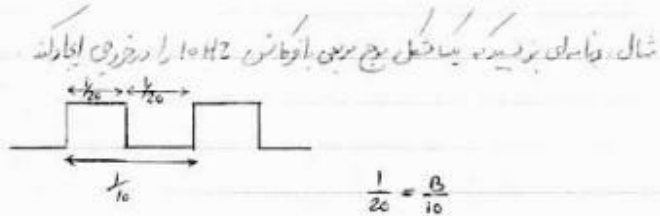 مثال. برنامه‌ای بنویسید که یک شکل موج مربعی با فرکانس 10HZ را در خروجی ایجاد کند
1/20 1/20
1/10
1/20 = B/10